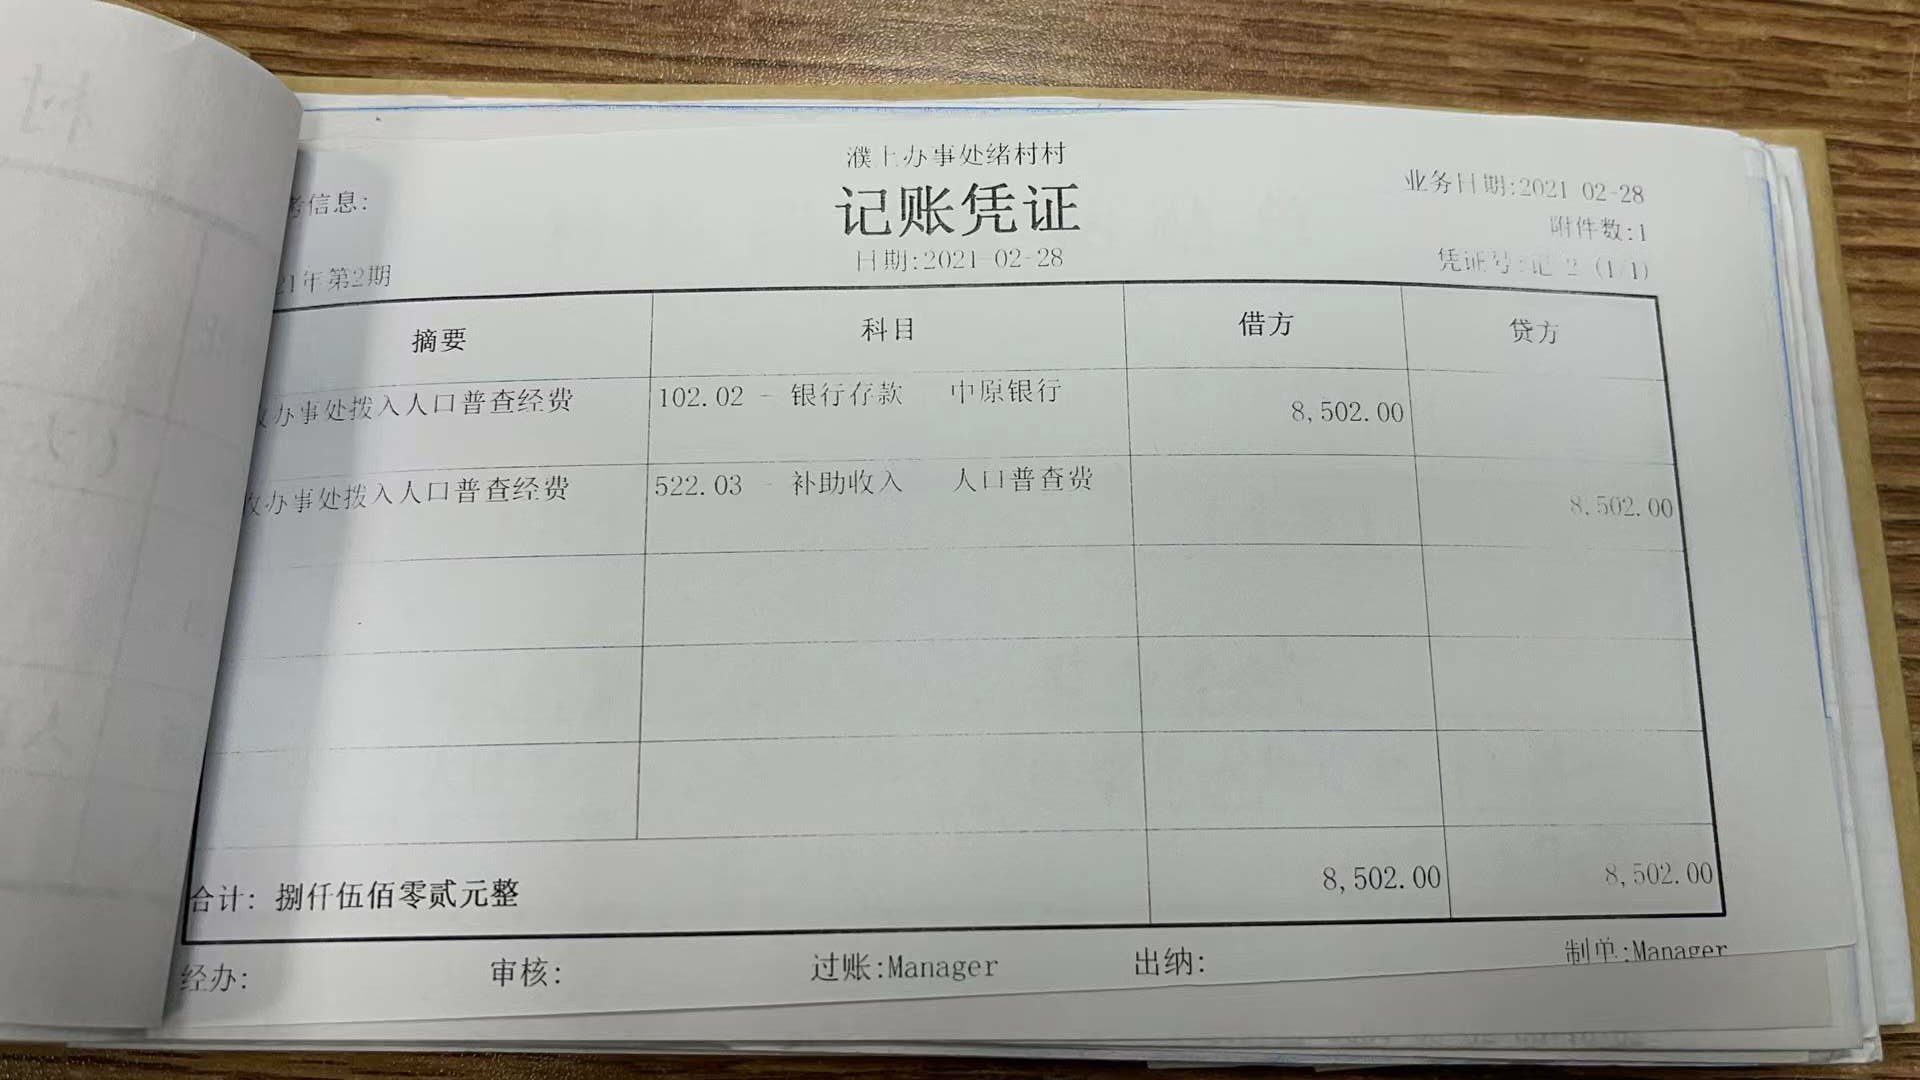 濮上办事处绪村村
记账凭证
日期:2021-02-28
业务日期:2021-02-28
附件数:1
凭证号:记-2 (1/1)
考信息:
21年第2期
摘要 科目 借方 贷方
收办事处拨入人口普查经费 102.02 - 银行存款 中原银行 8,502.00
收办事处拨入人口普查经费 522.03 - 补助收入 人口普查费 8,502.00
合计: 捌仟伍佰零贰元整 8,502.00 8,502.00
经办: 审核: 过账:Manager 出纳: 制单:Manager